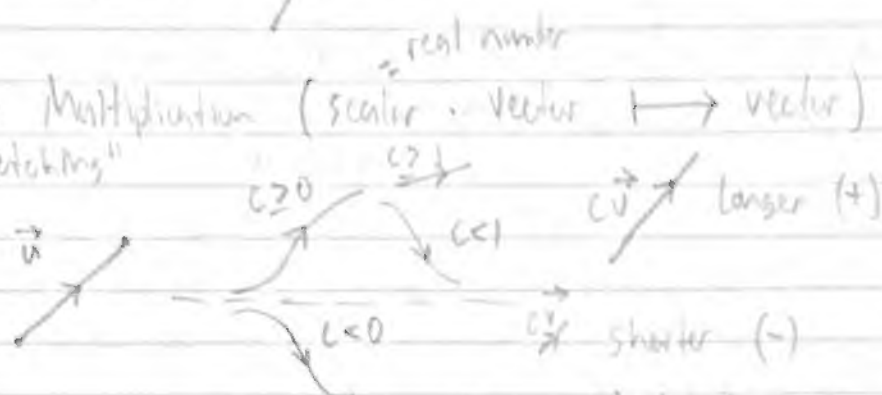 real number
Multiplication (scalar · vector ⟼ vector)
etching"
c≥0 c≥1 cv⃗ Longer (+)
c<1
c<0 shorter (-)